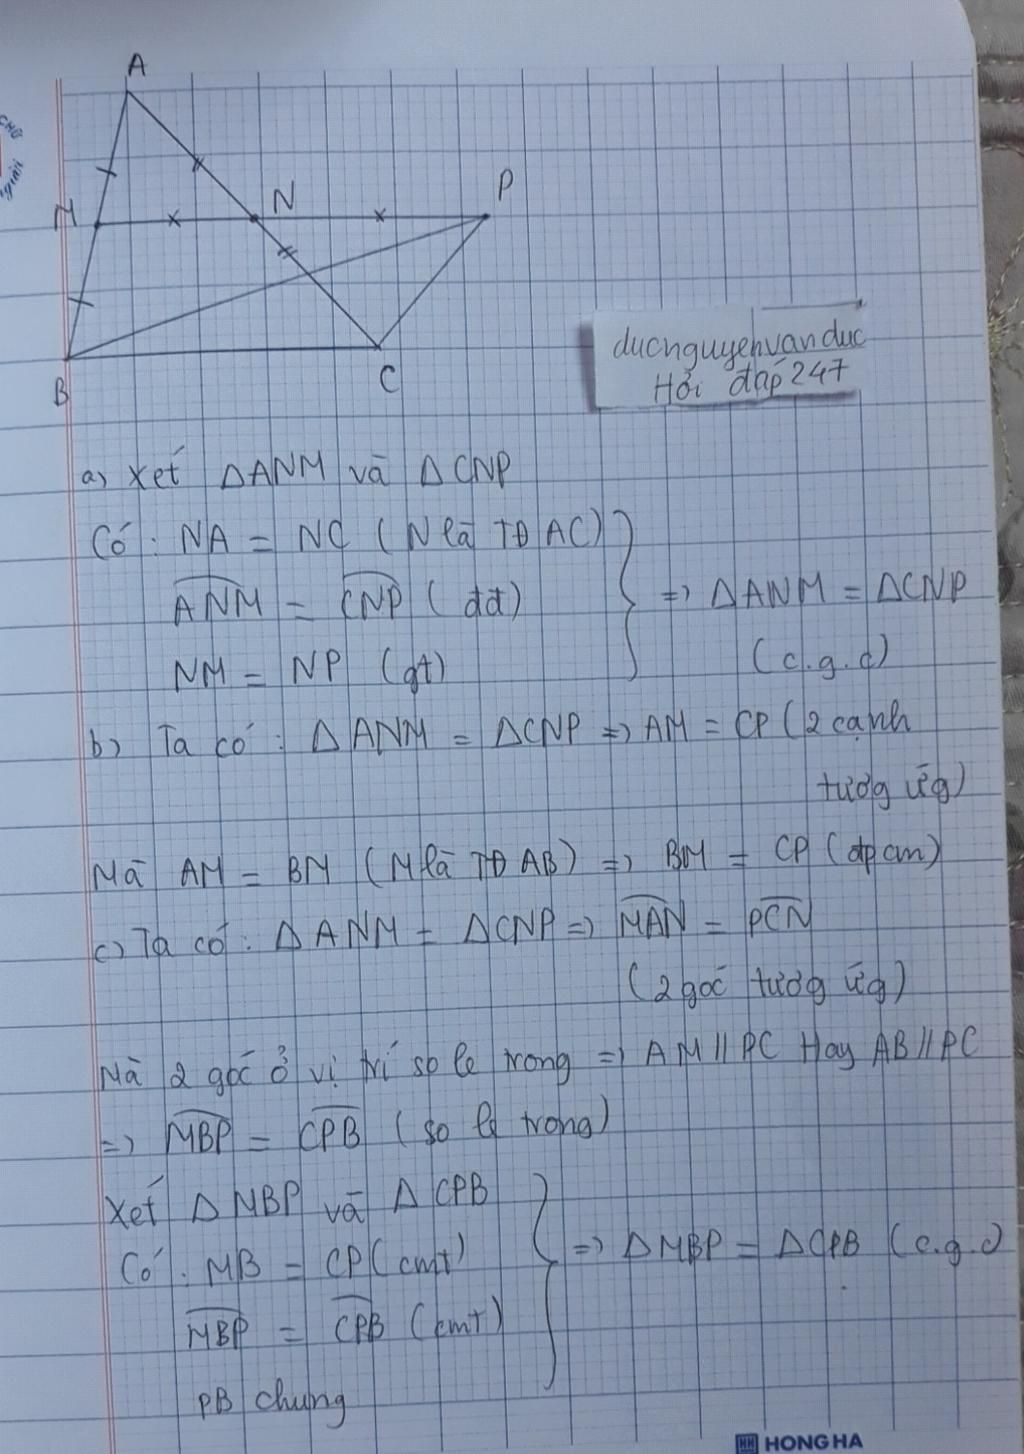 A
M
N
P
B
C
ducnguyenvanduc
Hỏi đáp 247
a) Xét ΔANM và ΔCNP
Có : NA = NC ( N là TĐ AC)
ANM = CNP ( đđ)
=> ΔANM = ΔCNP
NM = NP (gt)
(c.g.c)
b) Ta có : ΔANM = ΔCNP => AM = CP (2 cạnh
tươg ứg)
Mà AM = BM (M là TĐ AB) => BM = CP (đpcm)
c) Ta có : ΔANM = ΔCNP => MAN = PCN
(2 góc tươg ứg)
Mà 2 góc ở vị trí so le trong => AM // PC Hay AB // PC
=> MBP = CPB (so le trong)
Xét ΔMBP và ΔCPB
Có : MB = CP (cmt)
=> ΔMBP = ΔCPB (c.g.c)
MBP = CPB (cmt)
PB chung
HH HONG HA